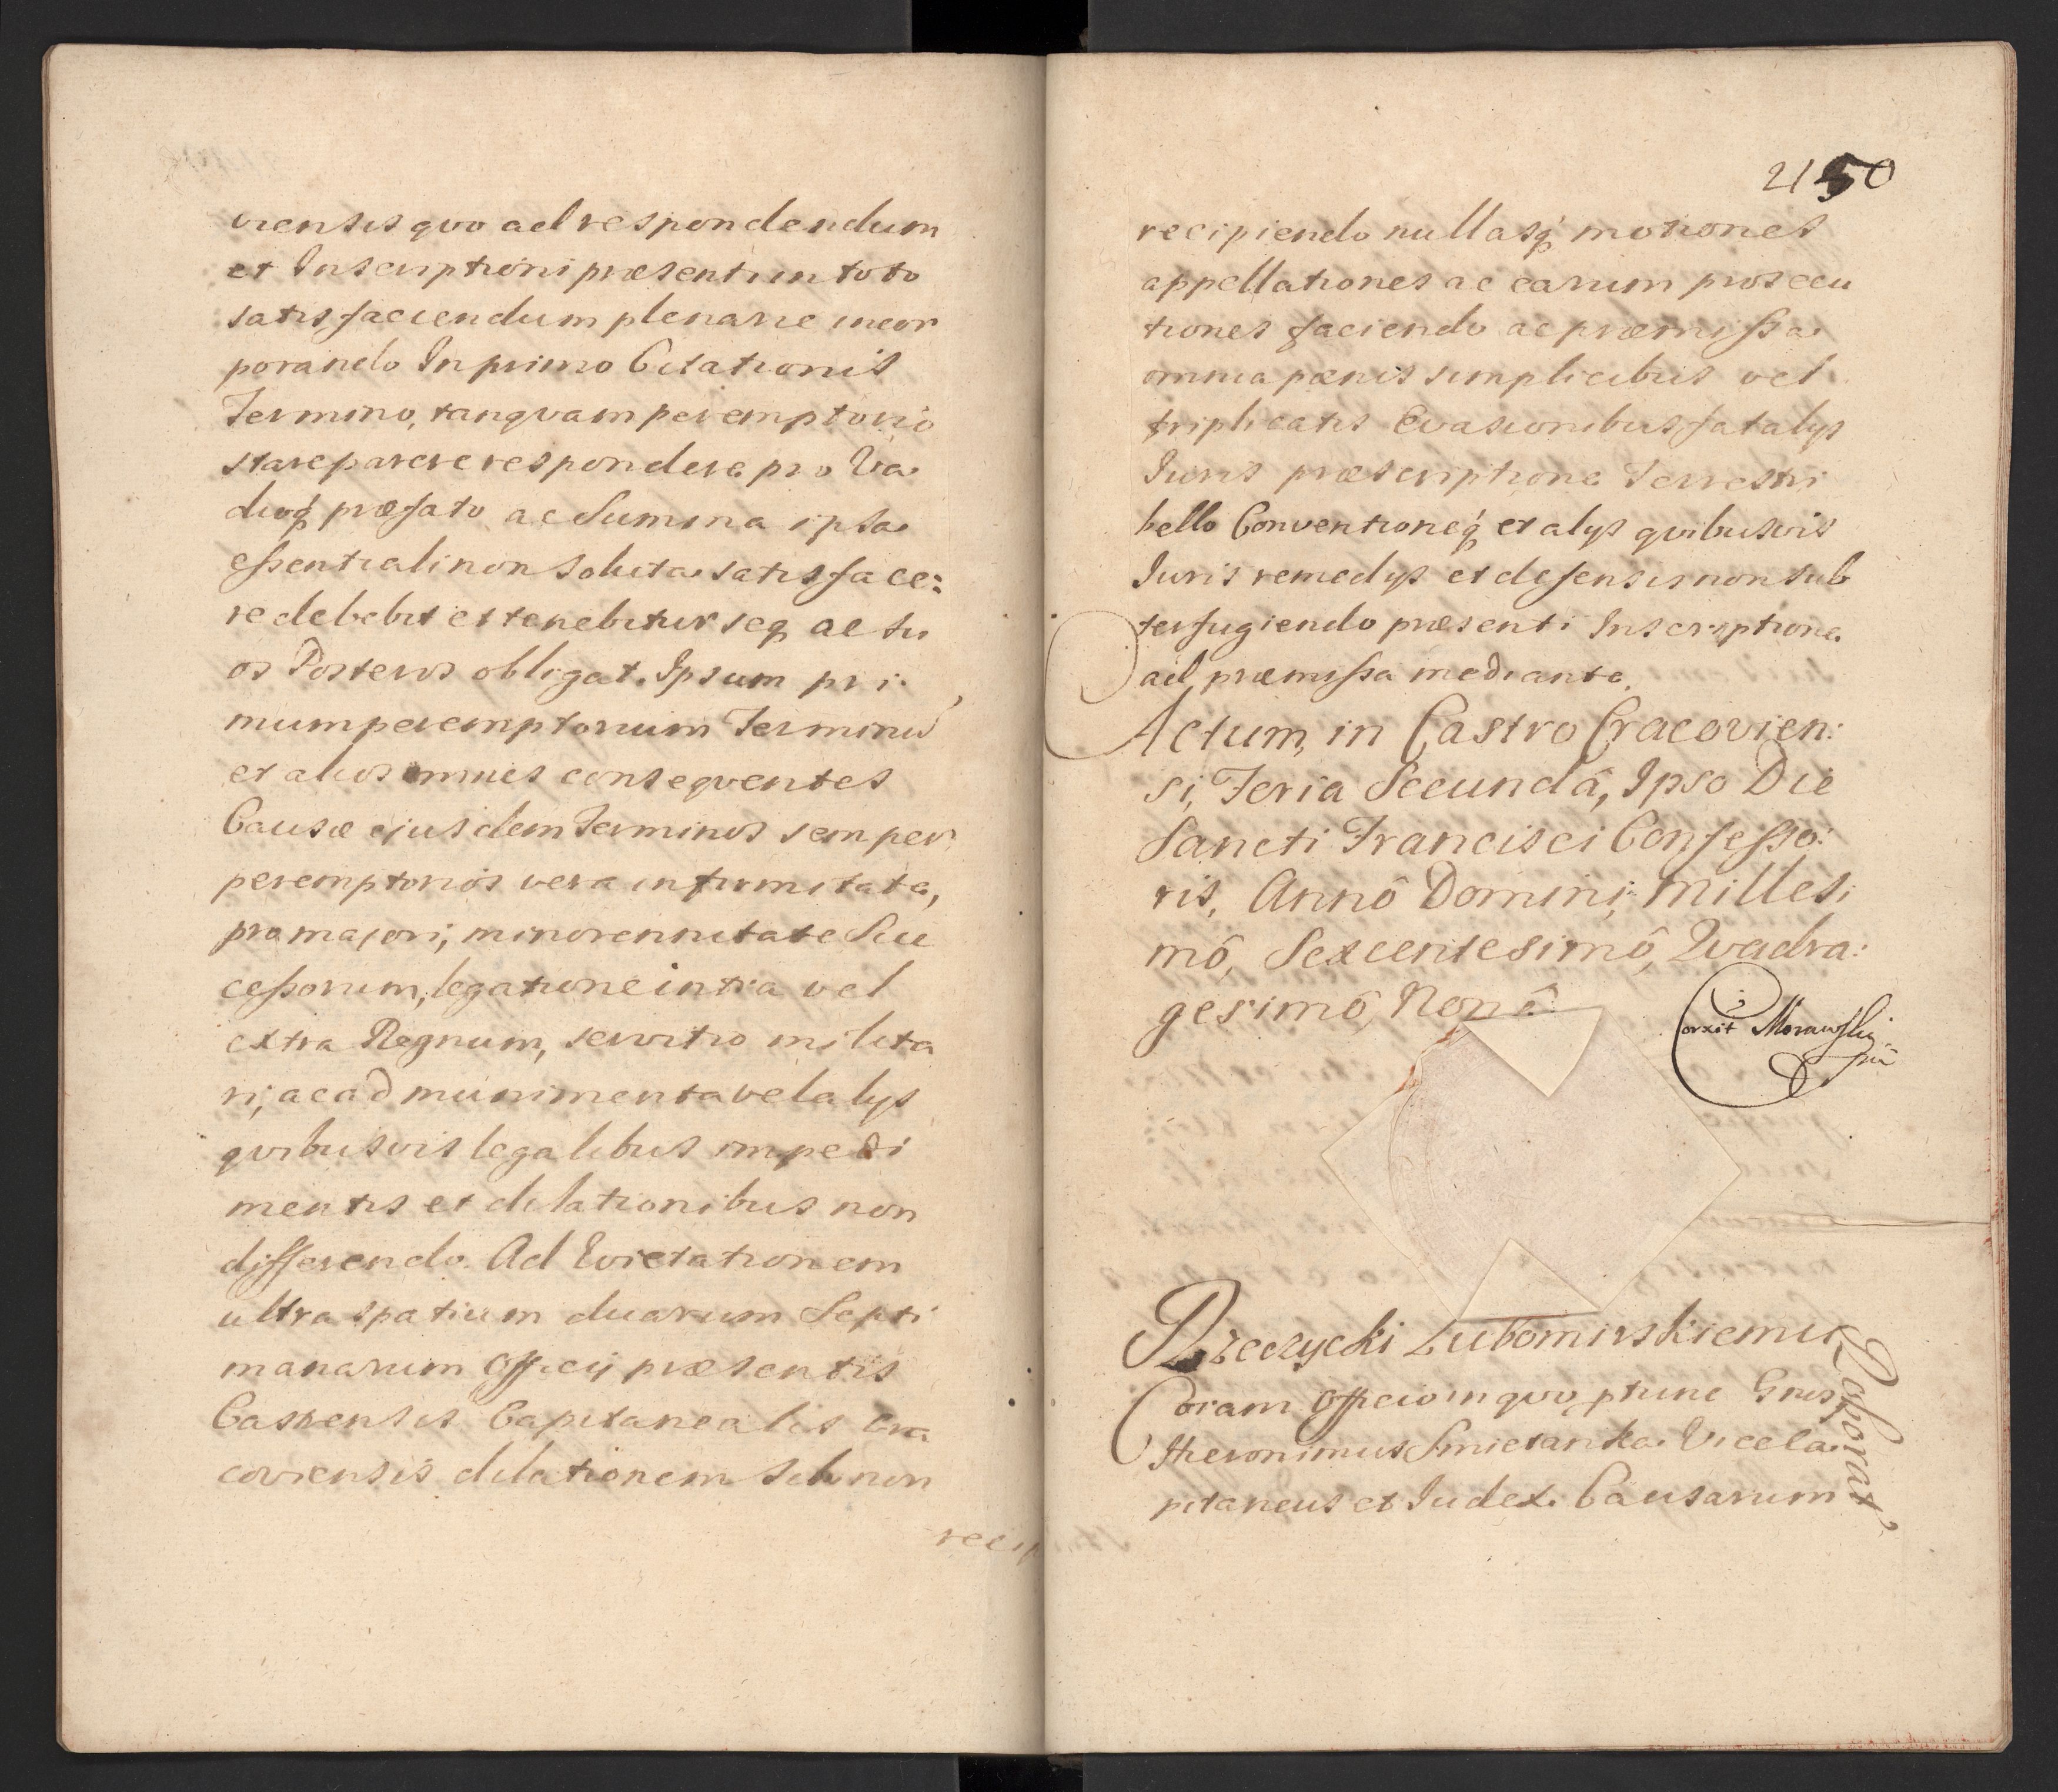 viensis qvo ad respondendum
et Inscriptioni præsenti in toto
satisfaciendum plenarie incor
porando In primo Citationis
Termino, tanqvam peremptorio
stare parere respondere pro Va
dioq præfato ac Summa ipsa
essentiali non soluta satisface:
re debebit et tenebitur seq ac su
os Posteros obligat. Ipsum pri
mum peremptorium Terminu
et alios omnes conseqventes
Causæ ejusdem Terminos semper
peremptorios vera infirmitate,
pro majori, minorennitate Suc
cessorum, legatione intra vel
extra Regnum, servitio milita
ri, ac ad munimenta vel alys
qvibusvis legalibus impedi
mentis et dilationibus non
differendo. Ad Evictationem
ultra spatium duarum Septi
manarum Officij præsentis
Castrensis Capitanealis Cra
coviensis dilationem sibi non
recip
2150
recipiendo nullasq motiones
appellationes ac earum prosecu
tiones faciendo ac præmissa
omnia pœnis simplicibus vel
triplicatis Evasionibus fatalys
Iuris præscriptione Terrestri
bello Conventioneq et alys qvibusvis
Iuris remedys et defensis non sub
terfugiendo præsenti Inscriptione
ad præmissa mediante.
Actum, in Castro Cracovien:
si, Feria Secundâ, Ipso Die
Sancti Francisci Confesso:
ris, Annô Domini, Millesi
mô, Sexcentesimô, Qvadra:
gesimô, Nonô.
Corxit Morawski
mp
Rzeczycki Lubomirskiemu
Roborat
Coram Officio in qvo ptune Gnrs
Hieronimus Smietanka Viceca
pitaneus et Iudex Causarum